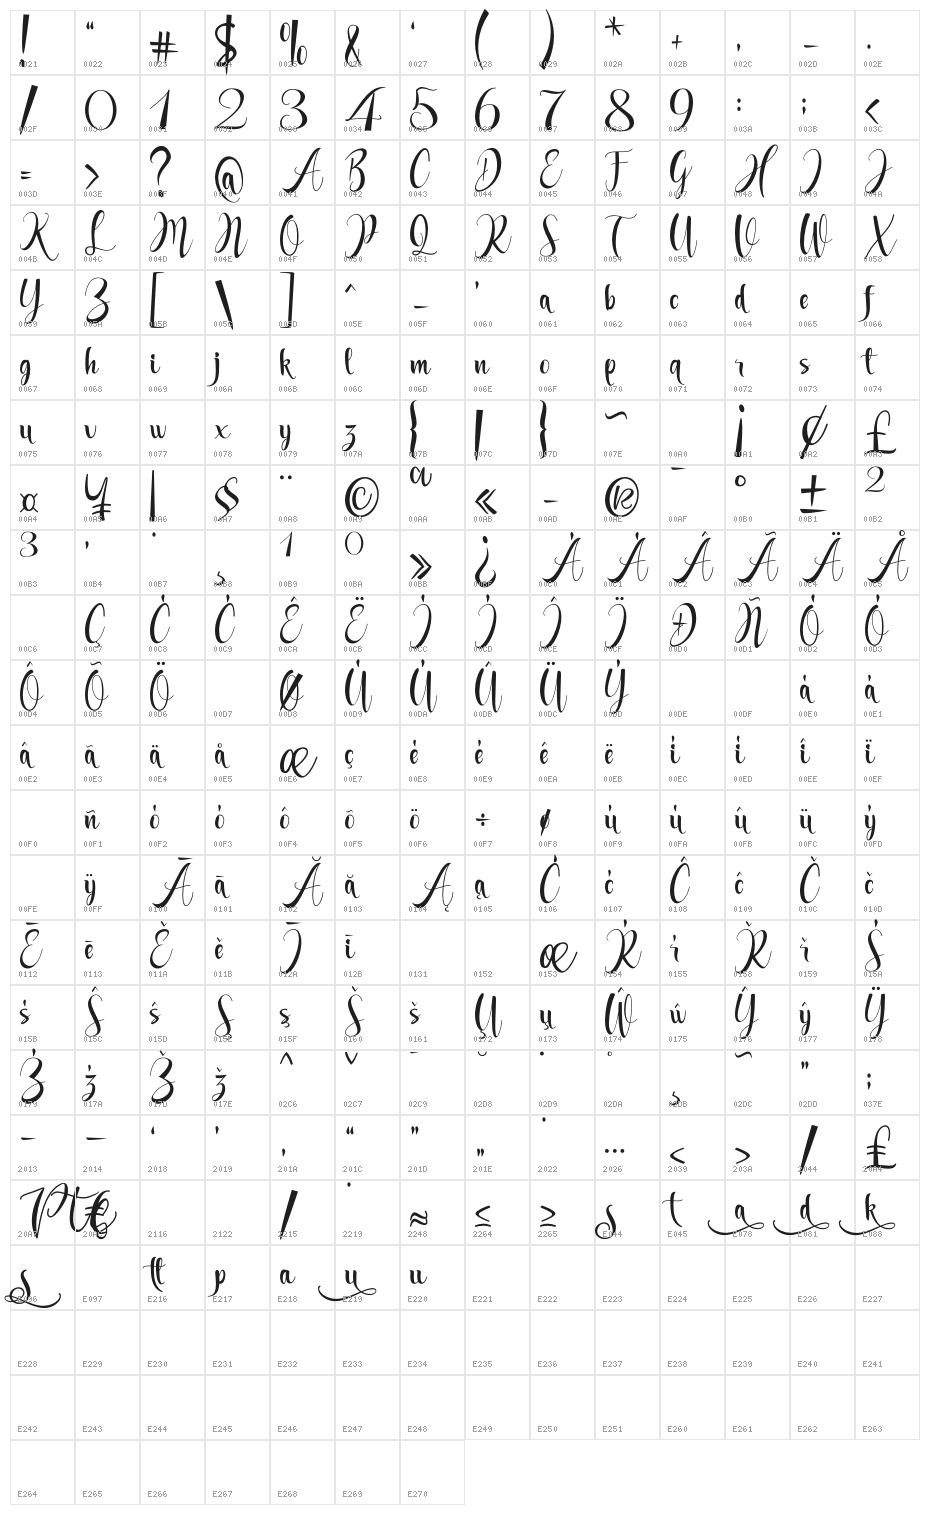 ! “ # $ % & ‘ ( ) * + , – .
0021 0022 0023 0024 0025 0026 0027 0028 0029 002A 002B 002C 002D 002E
/ 0 1 2 3 4 5 6 7 8 9 : ; <
002F 0030 0031 0032 0033 0034 0035 0036 0037 0038 0039 003A 003B 003C
= > ? @ A B C D E F G H I J
003D 003E 003F 0040 0041 0042 0043 0044 0045 0046 0047 0048 0049 004A
K L M N O P Q R S T U V W X
004B 004C 004D 004E 004F 0050 0051 0052 0053 0054 0055 0056 0057 0058
Y Z [ \ ] ^ _ ' a b c d e f
0059 005A 005B 005C 005D 005E 005F 0060 0061 0062 0063 0064 0065 0066
g h i j k l m n o p q r s t
0067 0068 0069 006A 006B 006C 006D 006E 006F 0070 0071 0072 0073 0074
u v w x y z { | } ~ ¡ ¢ £
0075 0076 0077 0078 0079 007A 007B 007C 007D 007E 00A0 00A1 00A2 00A3
¤ ¥ ¦ § ¨ © ª « - ® ¯ ° ± ²
00A4 00A5 00A6 00A7 00A8 00A9 00AA 00AB 00AD 00AE 00AF 00B0 00B1 00B2
³ ´ · ¸ ¹ º » ¿ À Á Â Ã Ä Å
00B3 00B4 00B7 00B8 00B9 00BA 00BB 00BF 00C0 00C1 00C2 00C3 00C4 00C5
Ç È É Ê Ë Ì Í Î Ï Ð Ñ Ò Ó
00C6 00C7 00C8 00C9 00CA 00CB 00CC 00CD 00CE 00CF 00D0 00D1 00D2 00D3
Ô Õ Ö Ø Ù Ú Û Ü Ý à á
00D4 00D5 00D6 00D7 00D8 00D9 00DA 00DB 00DC 00DD 00DE 00DF 00E0 00E1
â ã ä å æ ç è é ê ë ì í î ï
00E2 00E3 00E4 00E5 00E6 00E7 00E8 00E9 00EA 00EB 00EC 00ED 00EE 00EF
ñ ò ó ô õ ö ÷ ø ù ú û ü ý
00F0 00F1 00F2 00F3 00F4 00F5 00F6 00F7 00F8 00F9 00FA 00FB 00FC 00FD
ÿ Ā ā Ă ă Ą ą Ć ć Ĉ ĉ Č č
00FE 00FF 0100 0101 0102 0103 0104 0105 0106 0107 0108 0109 010C 010D
Ē ē Ě ě Ī ī œ Ŕ ŕ Ř ř Ś
0112 0113 011A 011B 012A 012B 0131 0152 0153 0154 0155 0158 0159 015A
ś Ŝ ŝ Ş ş Š š Ų ų Ŵ ŵ Ŷ ŷ Ÿ
015B 015C 015D 015E 015F 0160 0161 0172 0173 0174 0175 0176 0177 0178
Ź ź Ž ž ˆ ˇ ˉ ˘ ˙ ˚ ˛ ˜ ˝ ;
0179 017A 017D 017E 02C6 02C7 02C9 02D8 02D9 02DA 02DB 02DC 02DD 037E
– — ‘ ’ ‚ “ ” „ • … ‹ › ⁄ ₤
2013 2014 2018 2019 201A 201C 201D 201E 2022 2026 2039 203A 2044 20A4
Pt € ∕ ∙ ≈ ≤ ≥ s t a d k
20A7 20AC 2116 2122 2215 2219 2248 2264 2265 E044 E045 E078 E081 E088
s tt p a y u
E096 E097 E216 E217 E218 E219 E220 E221 E222 E223 E224 E225 E226 E227
E228 E229 E230 E231 E232 E233 E234 E235 E236 E237 E238 E239 E240 E241
E242 E243 E244 E245 E246 E247 E248 E249 E250 E251 E260 E261 E262 E263
E264 E265 E266 E267 E268 E269 E270